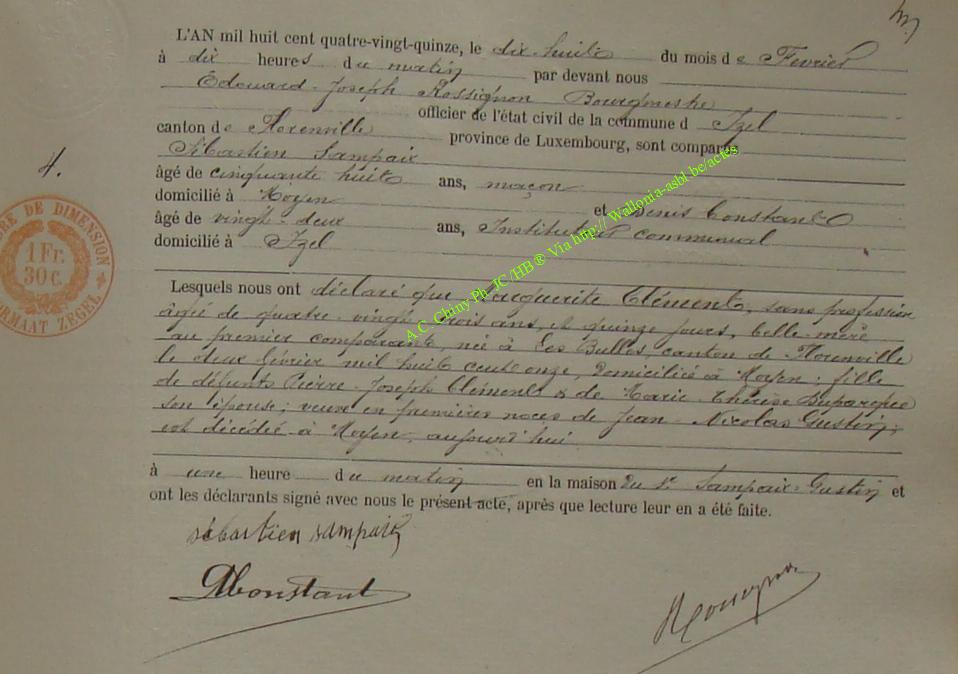 L'AN mil huit cent quatre-vingt-quinze, le dix-huit du mois de Février
à dix heures du matin par devant nous
Edouard-Joseph Rossignon Bourgmestre
officier de l'état civil de la commune d Izel
canton de Florenville province de Luxembourg, sont comparus
Sébastien Sampaix
âgé de cinquante huit ans, maçon
domicilié à Moyen et Denis Constant
âgé de vingt-deux ans, Instituteur communal
domicilié à Izel
4.
RE DE DIMENSION
1 Fr.
30 c.
RMAAT ZEGEL
Lesquels nous ont déclaré que Marguerite Clément, sans profession
âgée de quatre-vingt trois ans, et quinze jours, belle-mère
au premier comparant, née à Les Bulles, canton de Florenville
le deux février mil huit cent onze, domiciliée à Moyen; fille
de défunts Pierre-Joseph Clément & de Marie-Thérèse
son épouse; veuve en premières noces de Jean-Nicolas Gustin;
est décédée à Moyen, aujourd'hui
à une heure du matin en la maison du Sr Sampaix-Gustin et
ont les déclarants signé avec nous le présent acte, après que lecture leur en a été faite.
sébastien sampaix
DConstant
Rossignon
A.C. Chiny Ph. JC /HB ® Via http:// Wallonia-asbl.be/actes